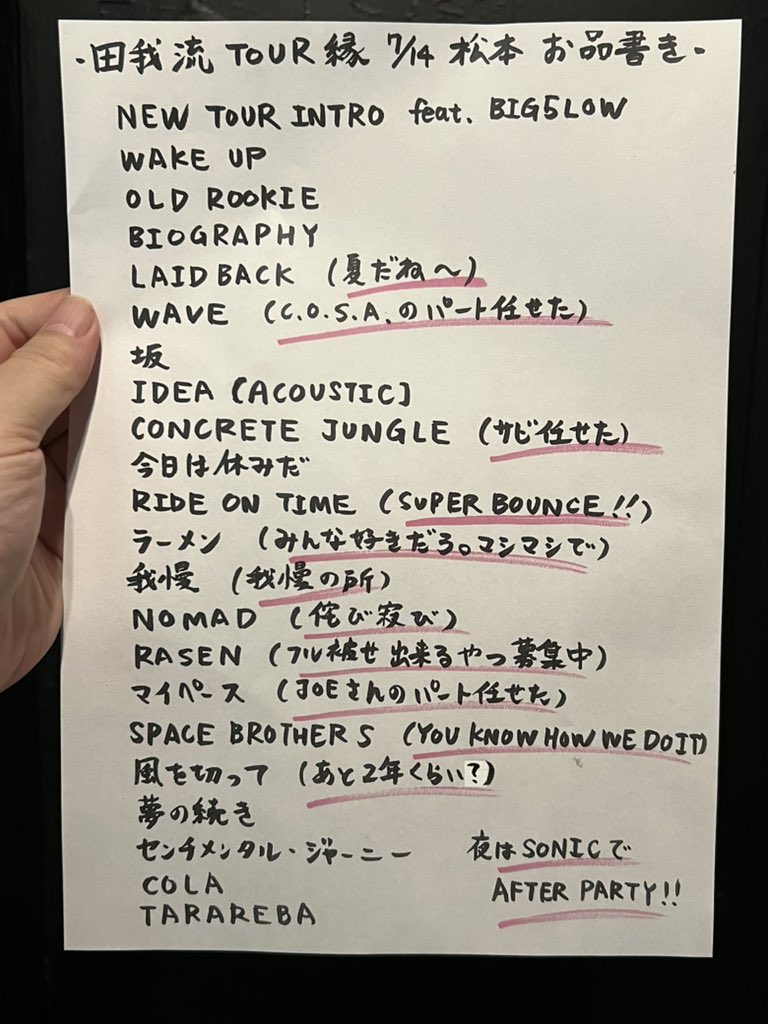 ・田我流 TOUR 縁 7/14 松本 お品書き・
NEW TOUR INTRO feat. BIG5LOW
WAKE UP
OLD ROOKIE
BIOGRAPHY
LAIDBACK (夏だね〜)
WAVE (C.O.S.A.のパート任せた)
坂
IDEA [ACOUSTIC]
CONCRETE JUNGLE (サビ任せた)
今日は休みだ
RIDE ON TIME (SUPER BOUNCE!!)
ラーメン (みんな好きだろ。マシマシで)
我慢 (我慢の所)
NOMAD (侘び寂び)
RASEN (フル被せ出来るやつ募集中)
マイペース (JOEさんのパート任せた)
SPACE BROTHERS (YOU KNOW HOW WE DO IT)
風を切って (あと2年くらい?)
夢の続き
センチメンタル・ジャーニー
COLA
TARAREBA
夜はSONICで
AFTER PARTY!!